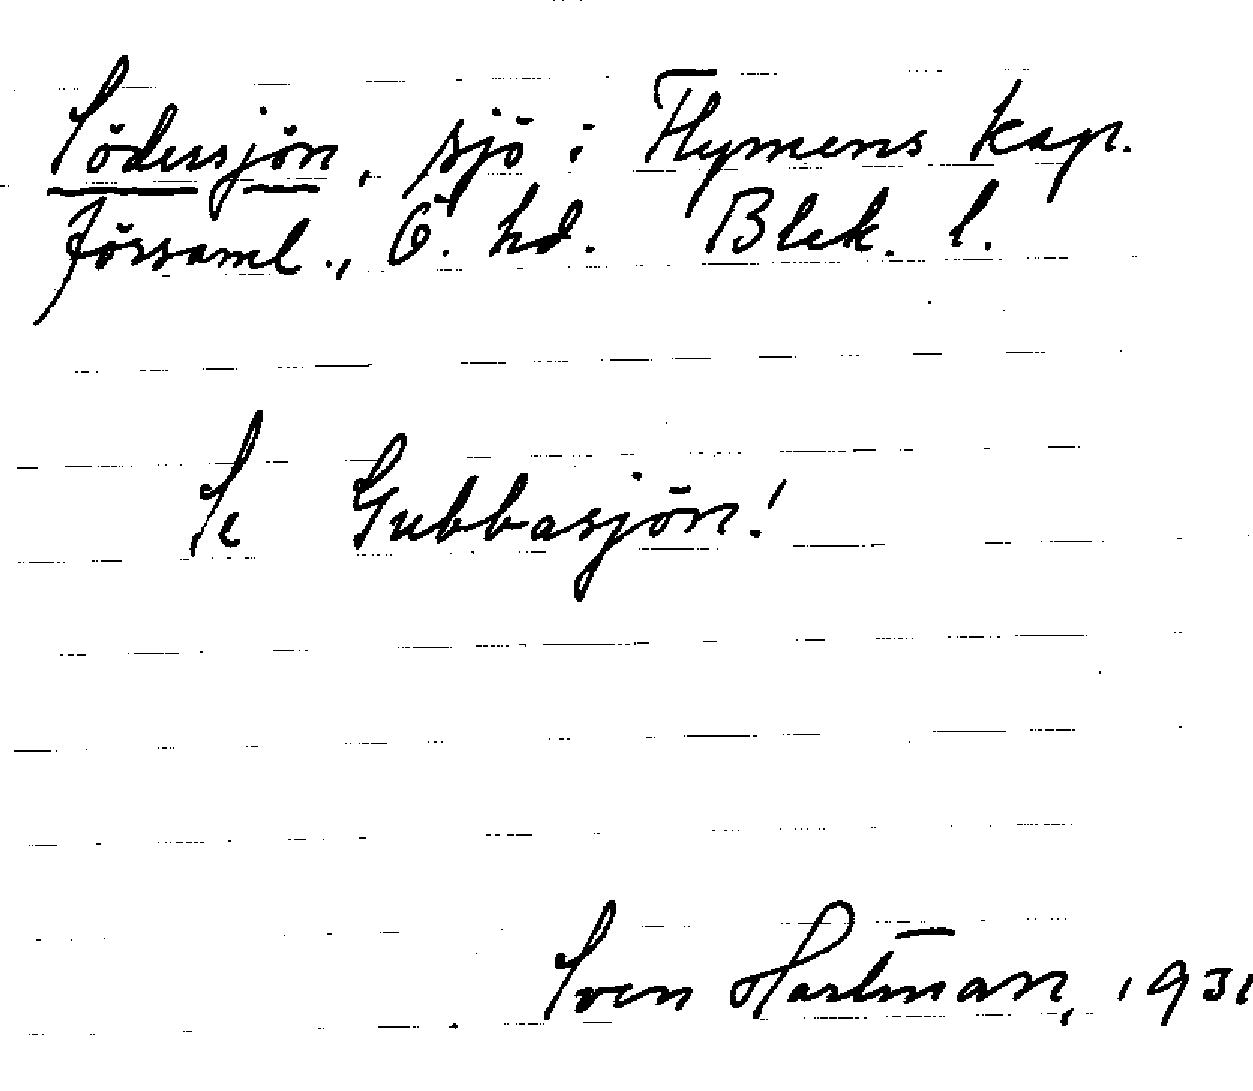 Södersjön, sjö i Flymens kap.
församl., Ö. hd. Blek. l.
Se Gubbasjön!
Sven Hartman, 1931